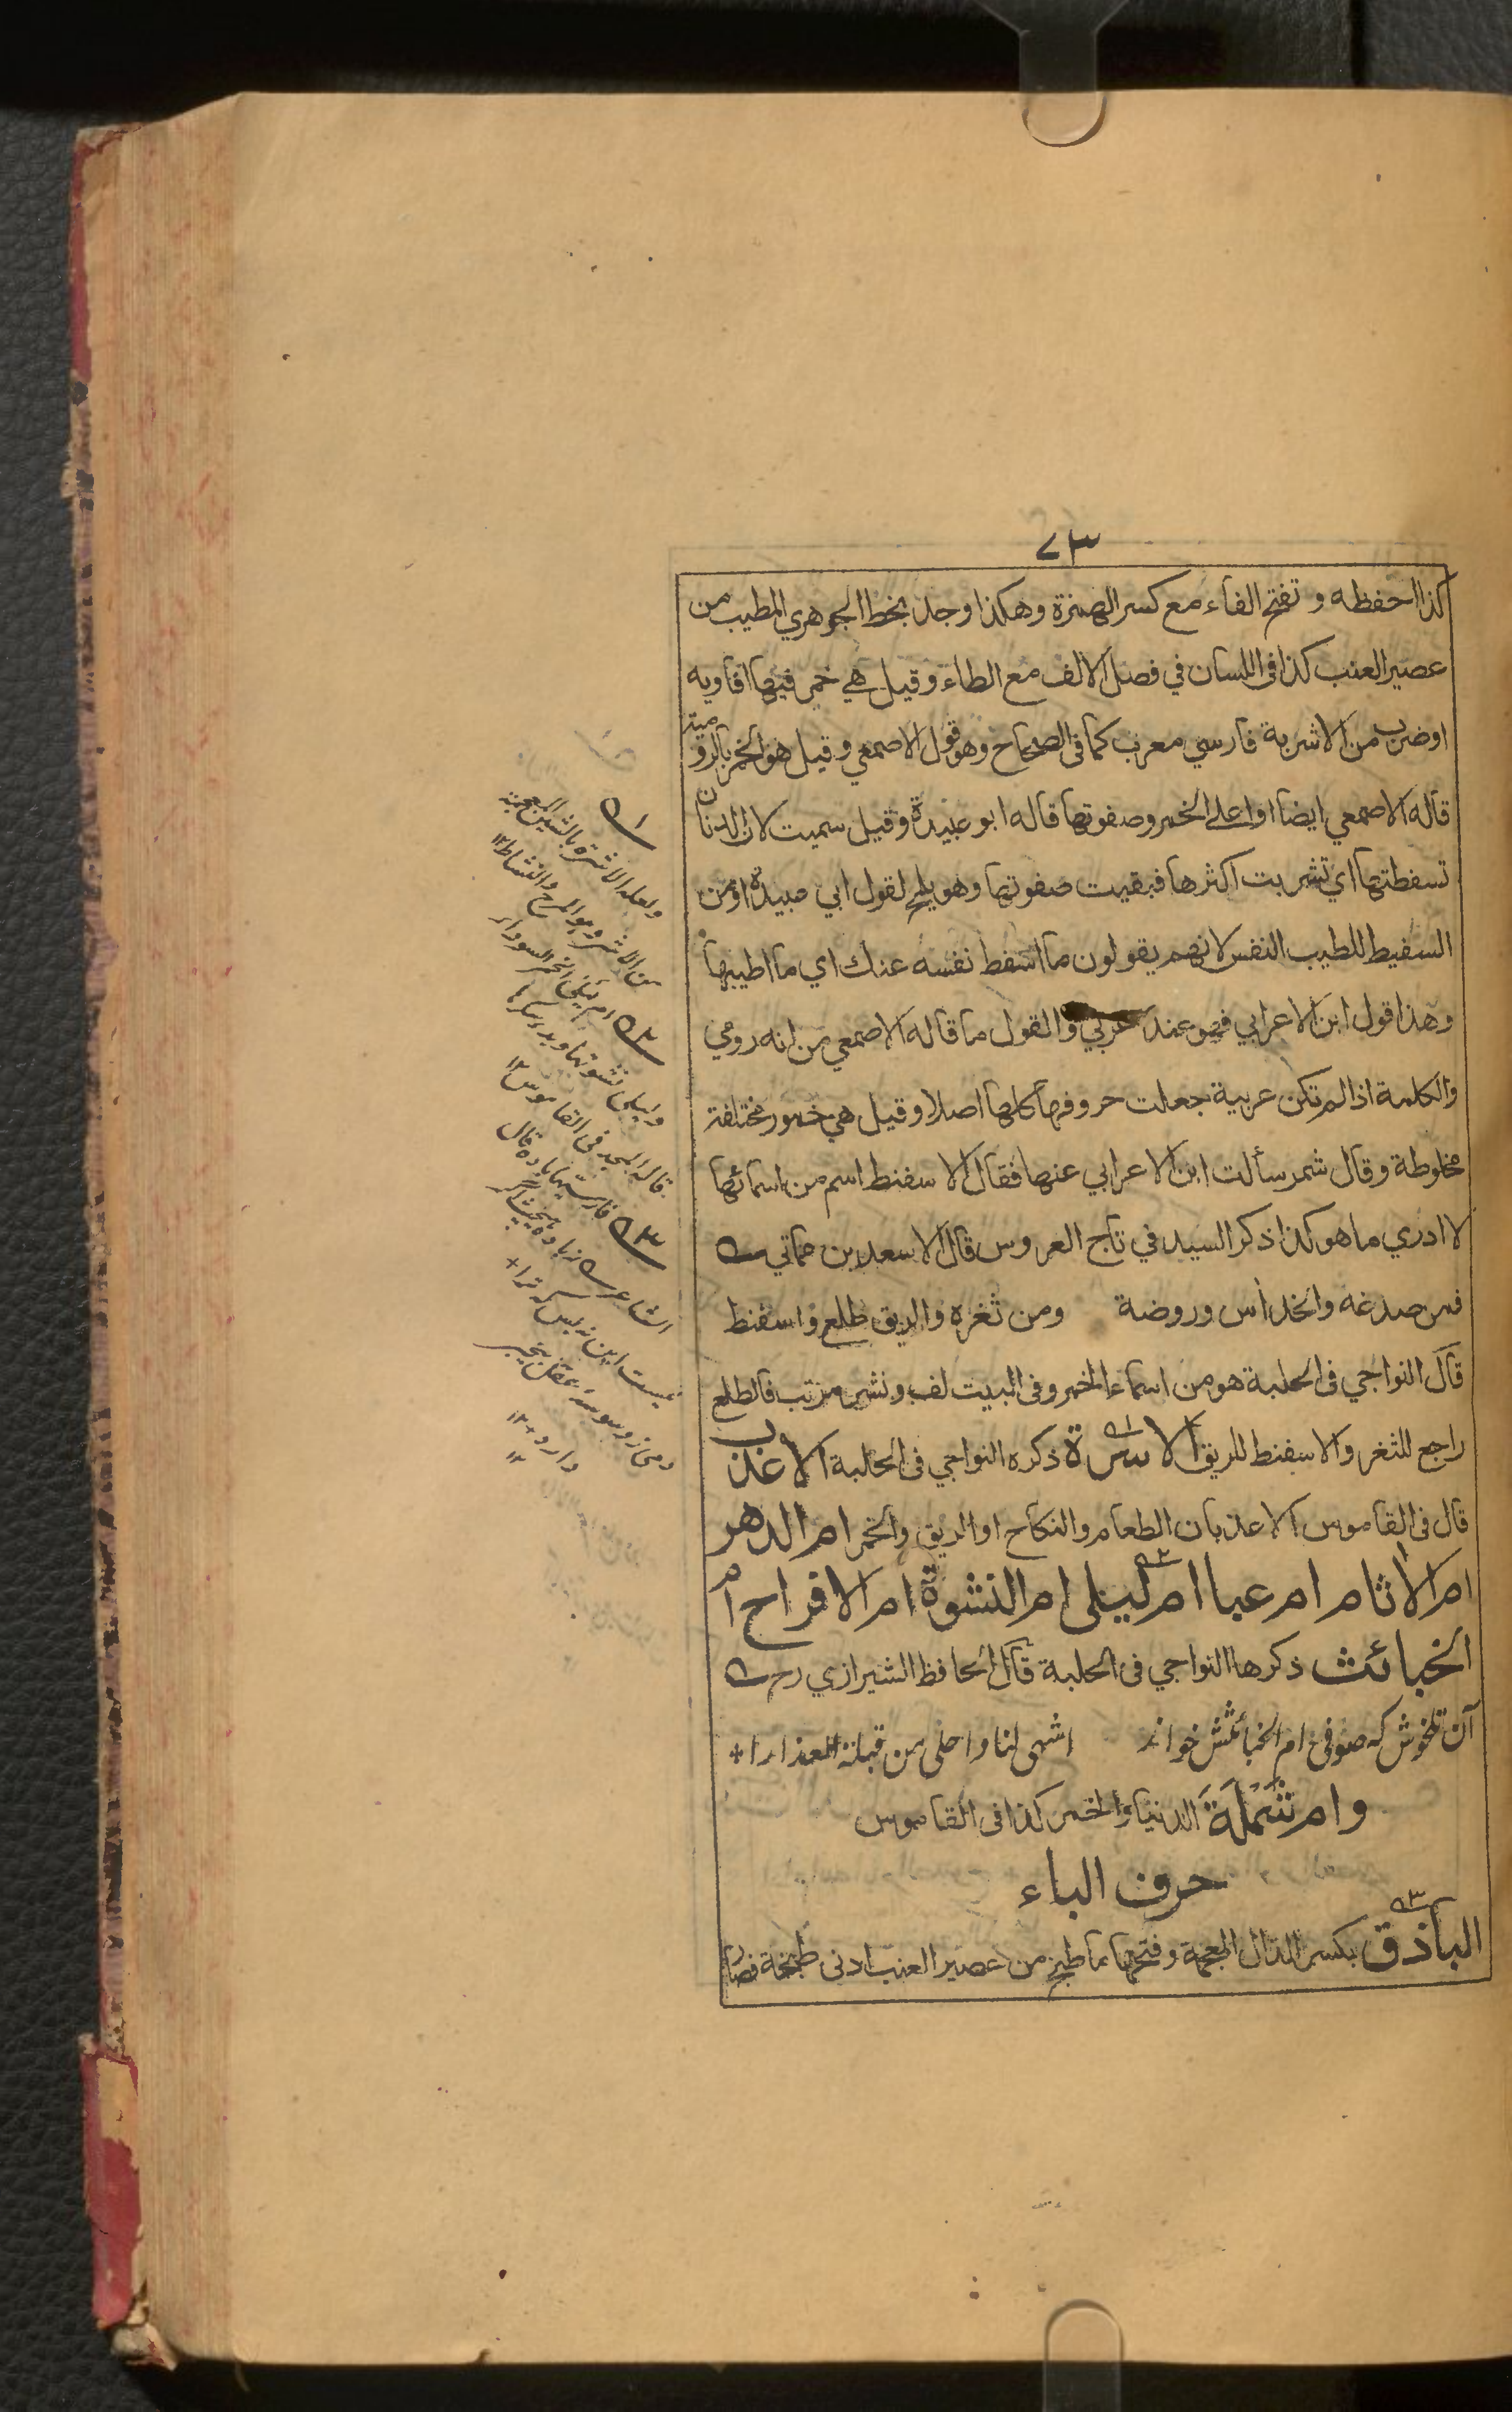 ٧٣
كذا احفظه و تفتح الفاء مع كسر الهمزة وهكذا وجد بخط الجوهري المطيب من
عصير العنب كذا فى اللسان في فصل الالف مع الطاء وقيل هي خمر فيها افاويه
اوضرب من الاشربة فارسي معرب كما فى الصحاح وهو قول الاصمعي وقيل هو الخمر بالرومية
قاله الاصمعي ايضا او اعلى الخمر وصفوتها قاله ابو عبيدة وقيل سميت لان الدنان
تسفطتها اي تشربت اكثرها فبقيت صفوتها وهو يلمح لقول ابي عبيدة او من
السفيط للطيب النفس لانهم يقولون ما اسفط نفسه عنك اي ما اطيبها
وهذا قول ابن الاعرابي فهو عند عربي والقول ما قاله الاصمعي من انه رومي
والكلمة اذا لم تكن عربية جعلت حروفها كلها اصلا وقيل هي خمور مختلفة
مخلوطة وقال شمر سألت ابن الاعرابي عنها فقال الاسفنط اسم من اسمائها
لا ادري ما هو كذا ذكر السيد في تاج العروس قال الاسعد بن مماتي
فمن صدغه والخد اس وروضة ومن ثغره والريق طلع واسفنط
قال النواجي فى الحلبة هو من اسماء الخمر وفى البيت لف ونشر مرتب فالطلع
راجع للثغر والاسفنط للريق الاشرة ذكره النواجي فى الحلبة الاعذب
قال فى القاموس الاعذبان الطعام والنكاح او الريق والخمر ام الدهر
ام الاثام ام عبا ام ليلى ام النشوة ام الافراح ام
الخبائث ذكرها النواجي فى الحلبة قال الحافظ الشيرازي رح
آن تلخوش كه صوفى ام الخبائثش خواند اشهى لنا واحلى من قبلة العذارا
وام شملة الدنيا والخمر كذا فى القاموس
حرف الباء
الباذق بكسر الذال المعجمة وفتحها ما طبخ من عصير العنب ادنى طبخة فصار
١
ولعله الاشرة بالشين المعجمة
من الاشر وهو المرح والنشاط ١٢
٢ ام ليلى الخمر السوداء
وليلى نشوتها وبدء سكرها
قاله المجد فى القاموس ١٢
٣ فارسيتها باده قال
الشاعر
نيست اين بس كه ترا
دمى ز وسوسه عقل بيخبر
دارد ١٢